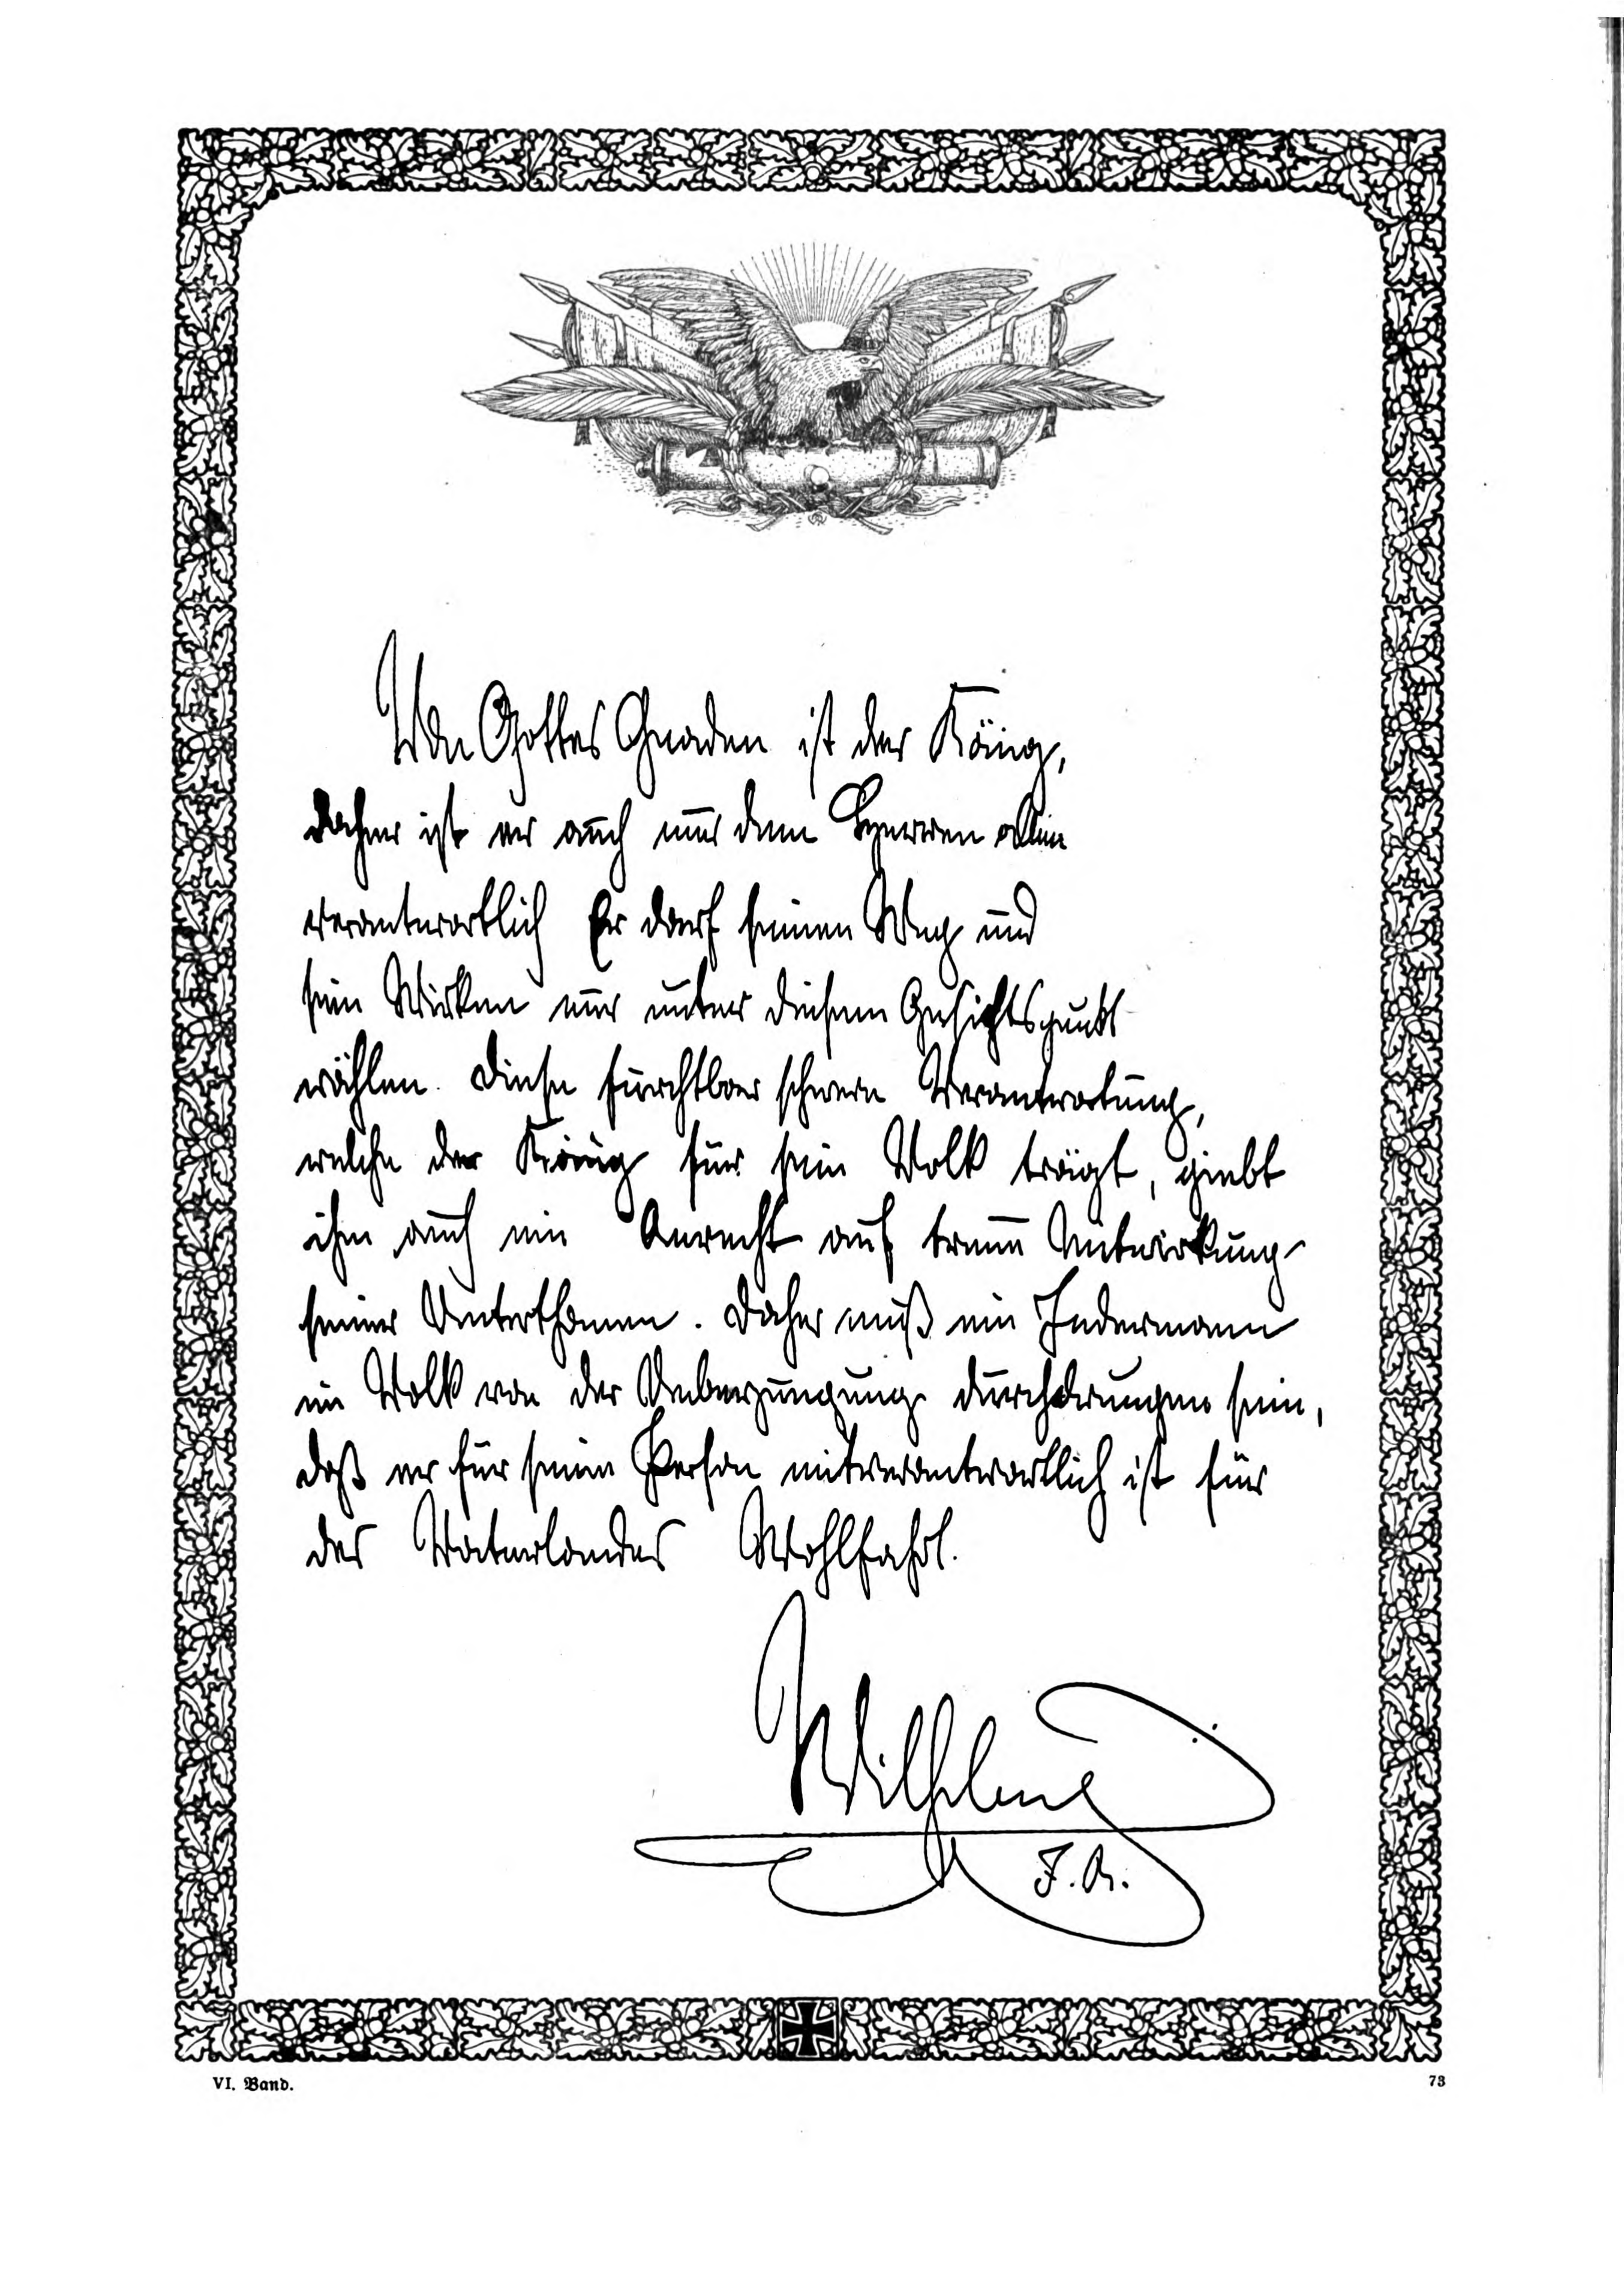 Von Gottes Gnaden ist der König,
daher ist er auch nur dem Herren allein
verantwortlich Er darf seinen Weg und
sein Wirken nur unter diesem Gesichtspunkt
wählen. Diese furchtbar schwere Verantwortung,
welche der König für sein Volk trägt, giebt
ihm auch ein Anrecht auf treue Mitwirkung
seiner Unterthanen. Daher muß ein Jedermann
im Volk von der Ueberzeugung durchdrungen sein,
daß er für seine Person mitverantwortlich ist für
des Vaterlandes Wohlfahrt.
Wilhelm
I. R.
VI. Band.
73